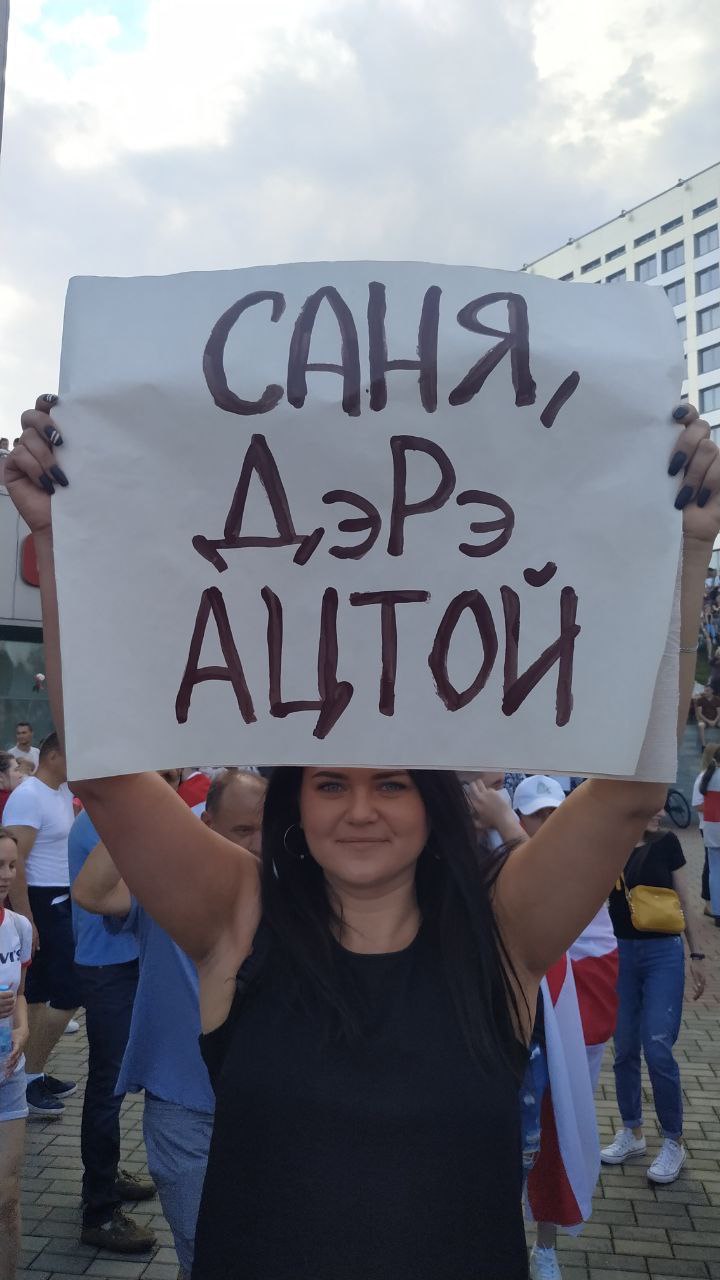 САНЯ,
ДэРэ
АЦТОЙ